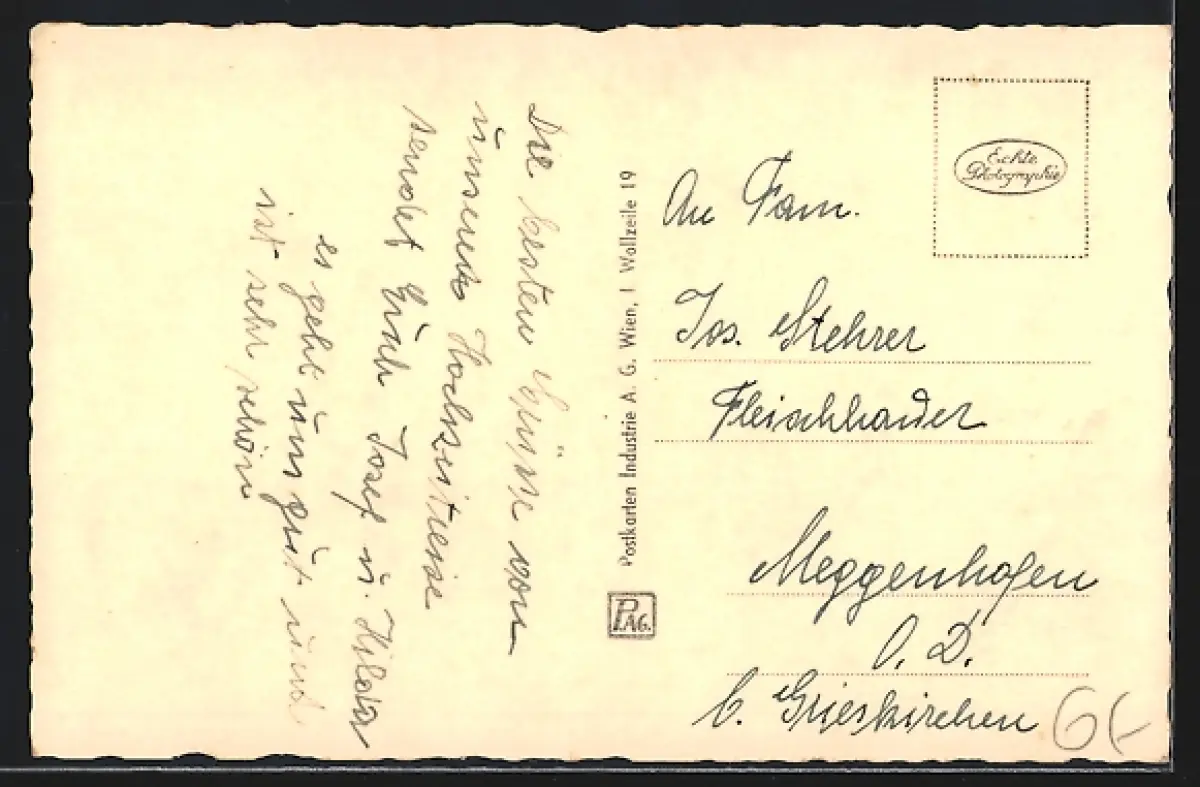 Die besten Grüße von
unserer Hochzeitsreise
sendet Euch Josef u. Hilda
es geht uns gut und
ist sehr schön
Postkarten Industrie A. G. Wien, I Wollzeile 19
PAG.
Echte
Photographie
An Fam.
Jos. Stehrer
Fleischhauer
Meggenhofen
O. D.
b. Grieskirchen